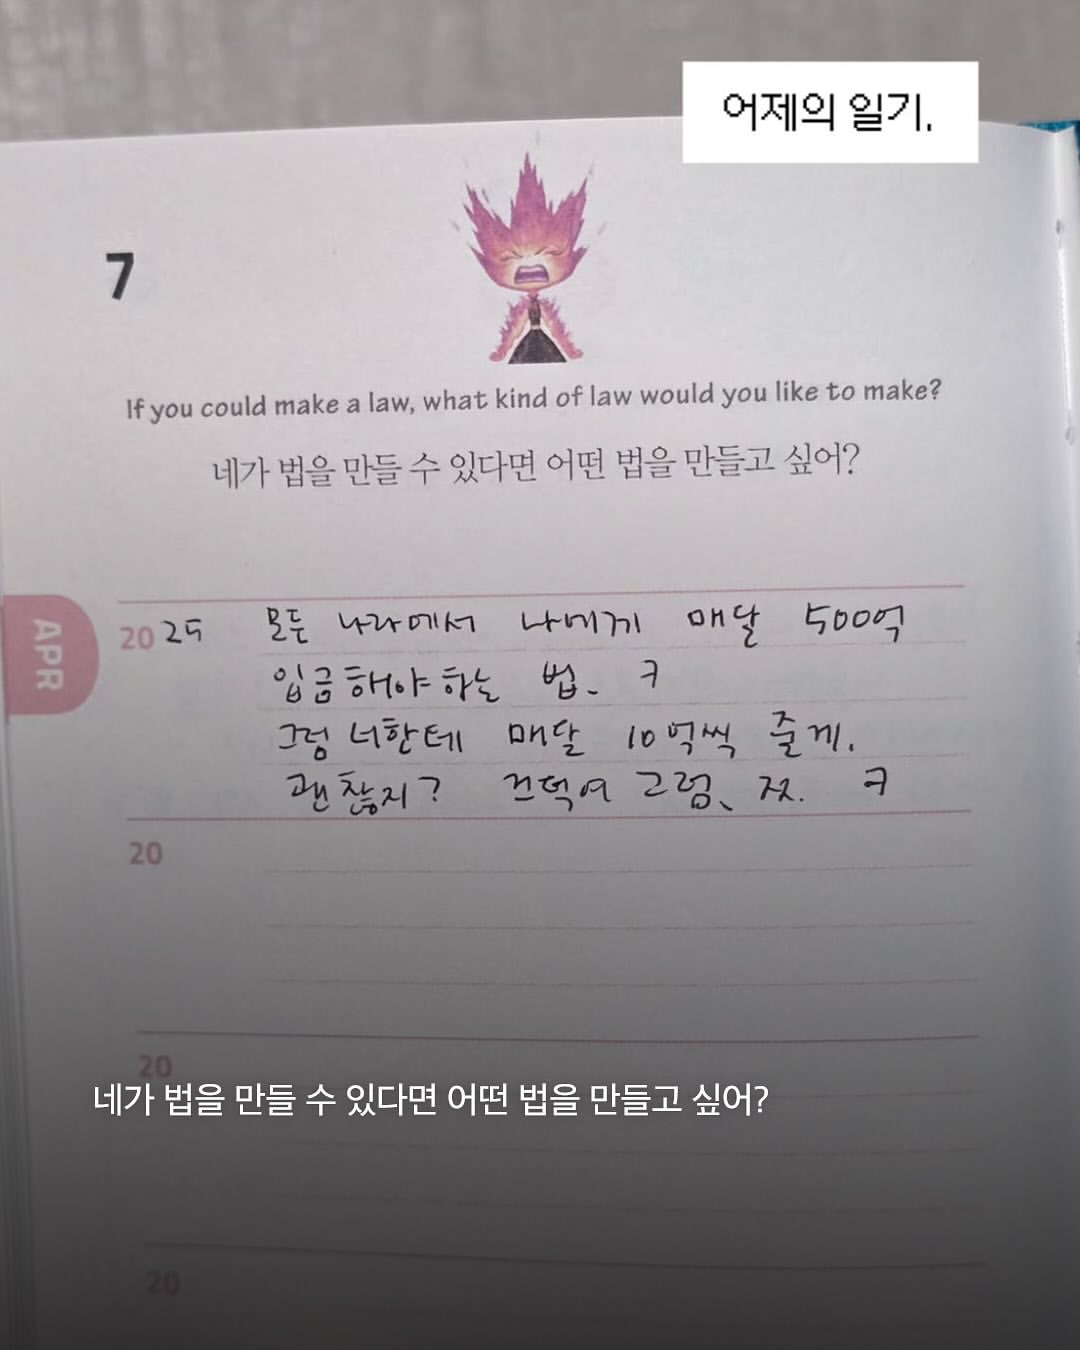 어제의 일기.
7
If you could make a law, what kind of law would you like to make?
네가 법을 만들 수 있다면 어떤 법을 만들고 싶어?
APR
2025 모든 나라에서 나에게 매달 500억
입금해야하는 법. ㅋ
그럼 너한테 매달 10억씩 줄게.
괜찮지? 끄덕여 그럼, ㅉ. ㅋ
20
20
네가 법을 만들 수 있다면 어떤 법을 만들고 싶어?
20